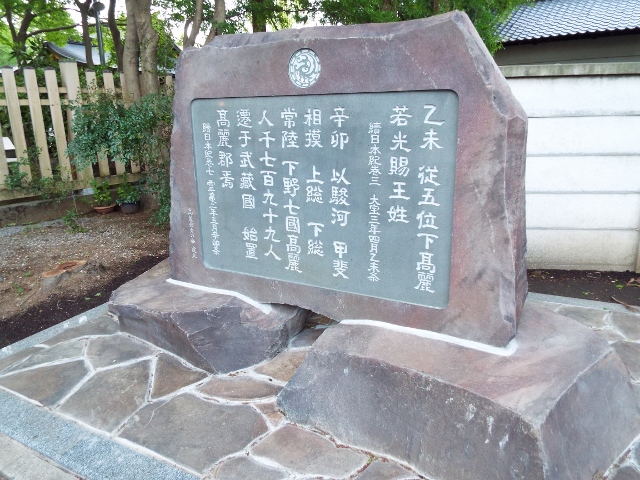 乙未 従五位下高麗
若光賜王姓
續日本紀卷三 大宝三年四月乙未条
辛卯 以駿河 甲斐
相摸 上総 下総
常陸 下野七國高麗
人千七百九十九人
遷于武藏國 始置
高麗郡焉
續日本紀卷七 霊亀二年五月辛卯条